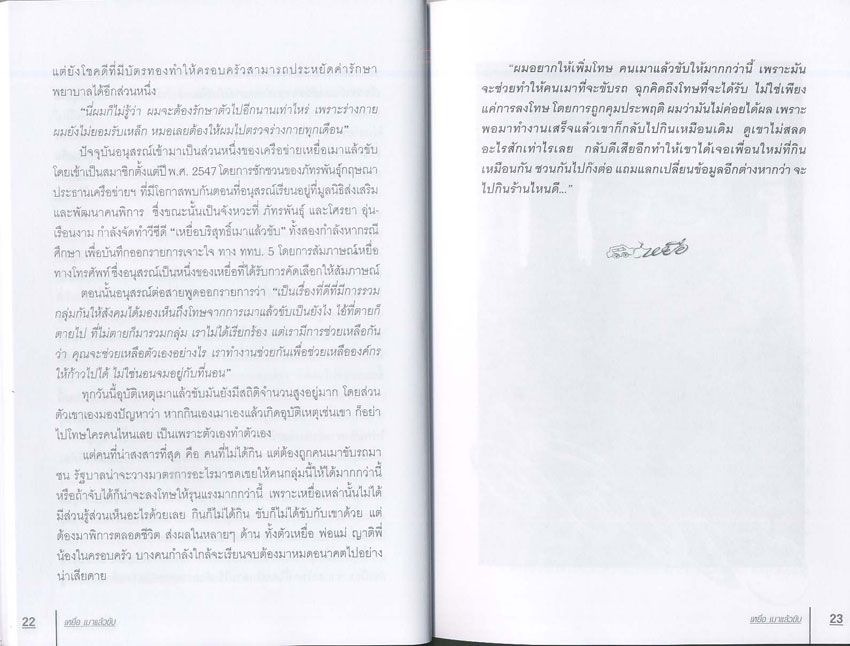 แต่ยังโชคดีที่มีบัตรทองทำให้ครอบครัวสามารถประหยัดค่ารักษา
พยาบาลได้อีกส่วนหนึ่ง
“นี่ผมก็ไม่รู้ว่า ผมจะต้องรักษาตัวไปอีกนานเท่าไหร่ เพราะร่างกาย
ผมยังไม่ยอมรับเหล็ก หมอเลยต้องให้ผมไปตรวจร่างกายทุกเดือน”
ปัจจุบันอนุสรณ์เข้ามาเป็นส่วนหนึ่งของเครือข่ายเหยื่อเมาแล้วขับ
โดยเข้าเป็นสมาชิกตั้งแต่ปี พ.ศ. 2547 โดยการชักชวนของภัทรพันธุ์กฤษณา
ประธานเครือข่ายฯ ที่มีโอกาสพบกันตอนที่อนุสรณ์เรียนอยู่ที่มูลนิธิส่งเสริม
และพัฒนาคนพิการ ซึ่งขณะนั้นเป็นจังหวะที่ ภัทรพันธุ์ และโศรยา อุ่น-
เรือนงาม กำลังจัดทำวีซีดี “เหยื่อบริสุทธิ์เมาแล้วขับ” ทั้งสองกำลังหากรณี
ศึกษา เพื่อบันทึกออกรายการเจาะใจ ทาง ททบ. 5 โดยการสัมภาษณ์เหยื่อ
ทางโทรศัพท์ ซึ่งอนุสรณ์เป็นหนึ่งของเหยื่อที่ได้รับการคัดเลือกให้สัมภาษณ์
ตอนนั้นอนุสรณ์ต่อสายพูดออกรายการว่า “เป็นเรื่องที่ดีที่มีการรวม
กลุ่มกันให้สังคมได้มองเห็นถึงโทษจากการเมาแล้วขับเป็นยังไง ไอ้ที่ตายก็
ตายไป ที่ไม่ตายก็มารวมกลุ่ม เราไม่ได้เรียกร้อง แต่เรามีการช่วยเหลือกัน
ว่า คุณจะช่วยเหลือตัวเองอย่างไร เราทำงานช่วยกันเพื่อช่วยเหลือองค์กร
ให้ก้าวไปได้ ไม่ใช่นอนจมอยู่กับที่นอน”
ทุกวันนี้อุบัติเหตุเมาแล้วขับมันยังมีสถิติจำนวนสูงอยู่มาก โดยส่วน
ตัวเขาเองมองปัญหาว่า หากกินเองเมาเองแล้วเกิดอุบัติเหตุเช่นเขา ก็อย่า
ไปโทษใครคนไหนเลย เป็นเพราะตัวเองทำตัวเอง
แต่คนที่น่าสงสารที่สุด คือ คนที่ไม่ได้กิน แต่ต้องถูกคนเมาขับรถมา
ชน รัฐบาลน่าจะวางมาตรการอะไรมาชดเชยให้คนกลุ่มนี้ให้ได้มากกว่านี้
หรือถ้าจับได้ก็น่าจะลงโทษให้รุนแรงมากกว่านี้ เพราะเหยื่อเหล่านั้นไม่ได้
มีส่วนรู้ส่วนเห็นอะไรด้วยเลย กินก็ไม่ได้กิน ขับก็ไม่ได้ขับกับเขาด้วย แต่
ต้องมาพิการตลอดชีวิต ส่งผลในหลายๆ ด้าน ทั้งตัวเหยื่อ พ่อแม่ ญาติพี่
น้องในครอบครัว บางคนกำลังใกล้จะเรียนจบต้องมาหมดอนาคตไปอย่าง
น่าเสียดาย
22 เหยื่อ เมาแล้วขับ
“ผมอยากให้เพิ่มโทษ คนเมาแล้วขับให้มากกว่านี้ เพราะมัน
จะช่วยทำให้คนเมาที่จะขับรถ ฉุกคิดถึงโทษที่จะได้รับ ไม่ใช่เพียง
แค่การลงโทษ โดยการถูกคุมประพฤติ ผมว่ามันไม่ค่อยได้ผล เพราะ
พอมาทำงานเสร็จแล้วเขาก็กลับไปกินเหมือนเดิม ดูเขาไม่สลด
อะไรสักเท่าไรเลย กลับดีเสียอีกทำให้เขาได้เจอเพื่อนใหม่ที่กิน
เหมือนกัน ชวนกันไปก๊งต่อ แถมแลกเปลี่ยนข้อมูลอีกต่างหากว่า จะ
ไปกินร้านไหนดี...”
เหยื่อ
เหยื่อ เมาแล้วขับ 23